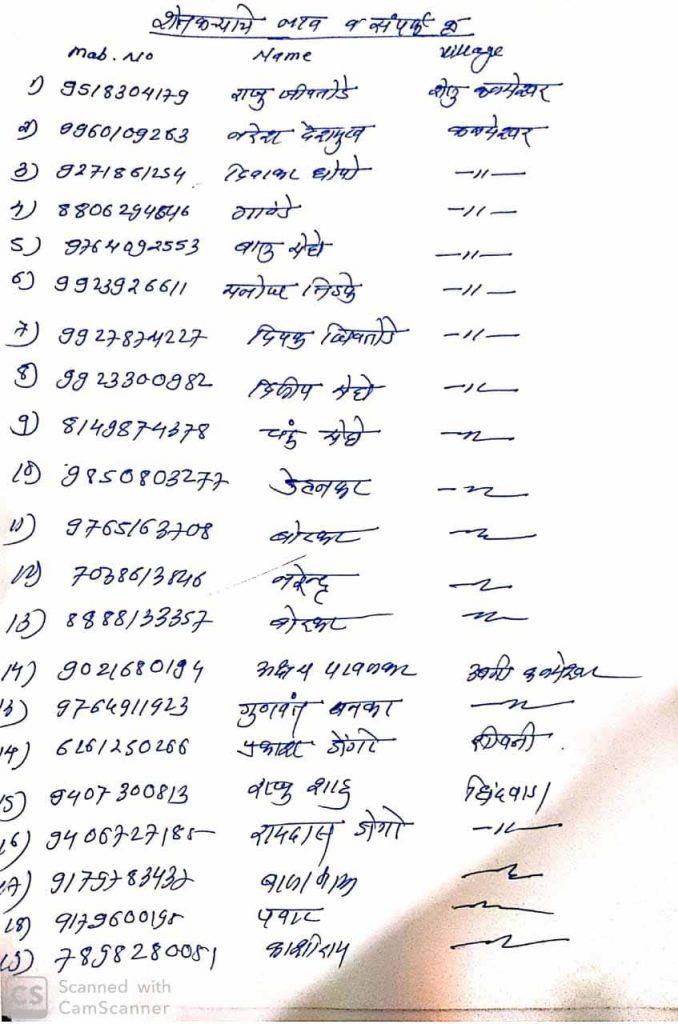 शेतकऱ्याचे नाव व संपर्क क्र
Mob. No Name Village
1) 9518304179 राजु जीवतोडे शेलु कळमेश्वर
2) 9960109263 नरेश देशमुख कळमेश्वर
3) 9271861254 दिवाकर -॥-
4) 8806294646 गावंडे -॥-
5) 9764092553 बालु मेहो -॥-
6) 9923926611 मनोज -॥-
7) 9927874227 दिपक जिवतोडे -॥-
8) 9923300982 दिलीप मेहो -॥-
9) 8149874378 चंदु मेहो -॥-
10) 9850803277 -॥-
11) 9765163708 बोरकर -॥-
12) 7038613846 नरेन्द्र -॥-
13) 8888133357 बोरकर -॥-
14) 9021680194 अक्षय कळमेश्वर
13) 9764911923 गुणवंत -॥-
14) 6261250266 प्रकाश डोंगरे सिवनी.
15) 9407300813 राजु शाहु छिंदवाडा
16) 9406727185 रामदास डोंगरे -॥-
17) 9179783432 -॥-
18) 9179600195 पवार -॥-
19) 7898280081 काशीराम -॥-
CS Scanned with
CamScanner